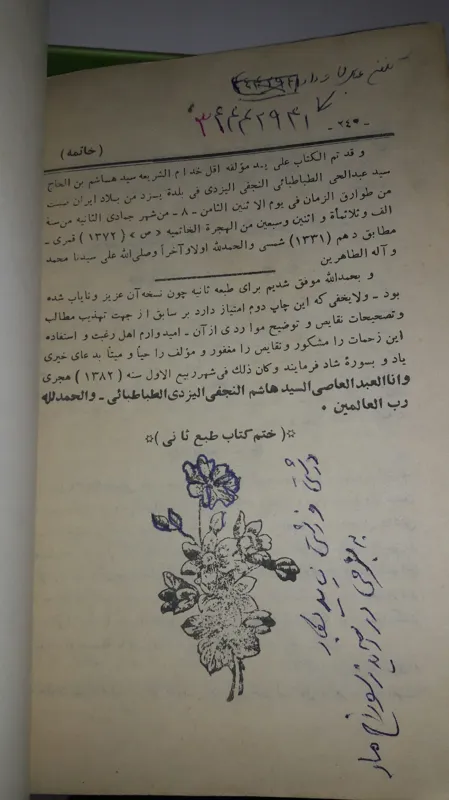 تلفن عبدالله زداره
۳۶۴۴۲۹۴۱
- ۲٤٥ -
(خاتمه)
و قد تم الكتاب على يد مؤلفه اقل خدام الشريعه سيد هاشم بن الحاج
سيد عبدالحى الطباطبائى النجفى اليزدى فى بلدة يزد من بلاد ايران صينت
من طوارق الزمان فى يوم الاثنين الثامن - ۸ - من شهر جمادى الثانيه من سنه
الف و ثلاثمأة و اثنين وسبعين من الهجرة الخاتميه «ص» (۱۳۷۲) قمرى -
مطابق دهم (۱۳۳۱) شمسى والحمدلله اولا وآخراً وصلى الله على سيدنا محمد
و آله الطاهرين
و بحمدالله موفق شديم براى طبعه ثانيه چون نسخه آن عزيز وناياب شده
بود - ولايخفى كه اين چاپ دوم امتياز دارد بر سابق از جهت تهذيب مطالب
وتصحيحات نقايص و توضيح مواردى از آن - اميدوارم اهل رغبت و استفاده
اين زحمات را مشكور ونقايص را مغفور و مؤلف را حياً و ميتاً بدعاى خيرى
ياد و بسورۀ شاد فرمايند وكان ذلك فى شهر ربيع الاول سنه (۱۳۸۲) هجرى
وانا العبد العاصى السيد هاشم النجفى اليزدى الطباطبائى - والحمدلله
رب العالمين ٠
☆(ختم كتاب طبع ثانى)☆
درشتی و زشتی نیاید بکار
به نرمی درآید ز سوراخ مار